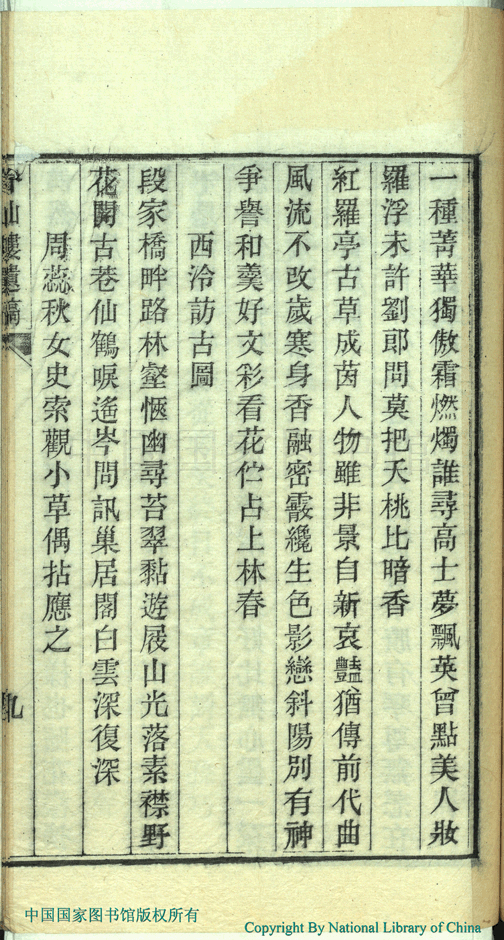 一種菁華獨傲霜燃燭誰尋高士夢飄英曾點美人妝
羅浮未許劉郎問莫把夭桃比暗香
紅羅亭古草成茵人物雖非景自新哀豔猶傳前代曲
風流不改歲寒身香融密霰纔生色影戀斜陽別有神
爭譽和羹好文彩看花伫占上林春
西泠訪古圖
段家橋畔路林壑愜幽尋苔翠黏遊屐山光落素襟野
花開古巷仙鶴唳遙岑問訊巢居閣白雲深復深
周蕊秋女史索觀小草偶拈應之
仙樓遺稿
九
中国国家图书馆版权所有
Copyright By National Library of China